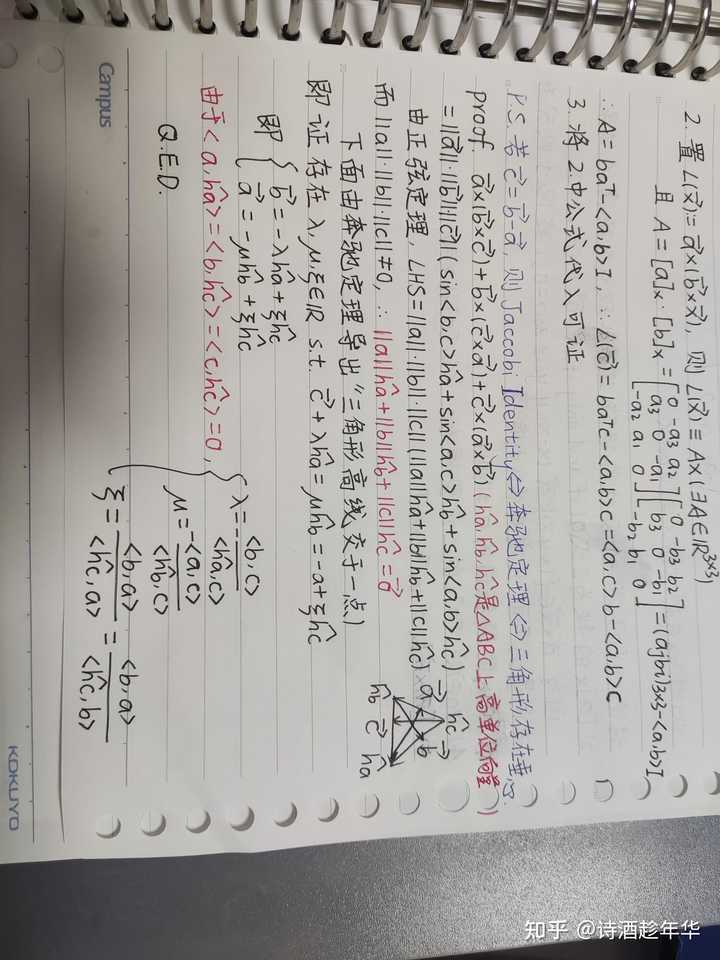 2. 置 L(x⃗):= a⃗×(b⃗×x⃗), 则 L(x⃗) ≡ Ax (∃A∈ℝ³ˣ³)
且 A = [a]ₓ·[b]ₓ = [0 -a3 a2; a3 0 -a1; -a2 a1 0][0 -b3 b2; b3 0 -b1; -b2 b1 0] = (ajbi)3×3 - <a,b>I,
∴ A = baᵀ-<a,b>I, ∴ L(c⃗) = baᵀc-<a,b>c = <a,c>b-<a,b>c
3. 将 2.中公式代入可证.
P.S. 若 c⃗=b⃗-a⃗, 则 Jaccobi Identity ⇔ 奔驰定理 ⇔ 三角形存在垂心.
proof. a⃗×(b⃗×c⃗)+b⃗×(c⃗×a⃗)+c⃗×(a⃗×b⃗) (ĥa,ĥb,ĥc是△ABC上高单位向量)
= ||a⃗||·||b⃗||·||c⃗|| (sin<b,c>ĥa+sin<a,c>ĥb+sin<a,b>ĥc)
由正弦定理, LHS=||a||·||b||·||c|| (||a||ĥa+||b||ĥb+||c||ĥc)
而 ||a||·||b||·||c||≠0, ∴ ||a||ĥa+||b||ĥb+||c||ĥc=0⃗
a⃗ ĥc b⃗
ĥb c⃗ ĥa
下面由奔驰定理导出“三角形高线交于一点)
即证存在 λ,μ,ξ∈ℝ s.t. c⃗+λĥa=μĥb=-a+ξĥc
即 { b⃗=-λĥa+ξĥc
a⃗=-μĥb+ξĥc
由于<a,ĥa>=<b,ĥb>=<c,ĥc>=0, { λ=-<b,c>/<ĥa,c>
μ=-<a,c>/<ĥb,c>
ξ=<b,a>/<ĥc,a>=<b,a>/<ĥc,b>
Q.E.D.
Campus
KOKUYO
知乎 @诗酒趁年华